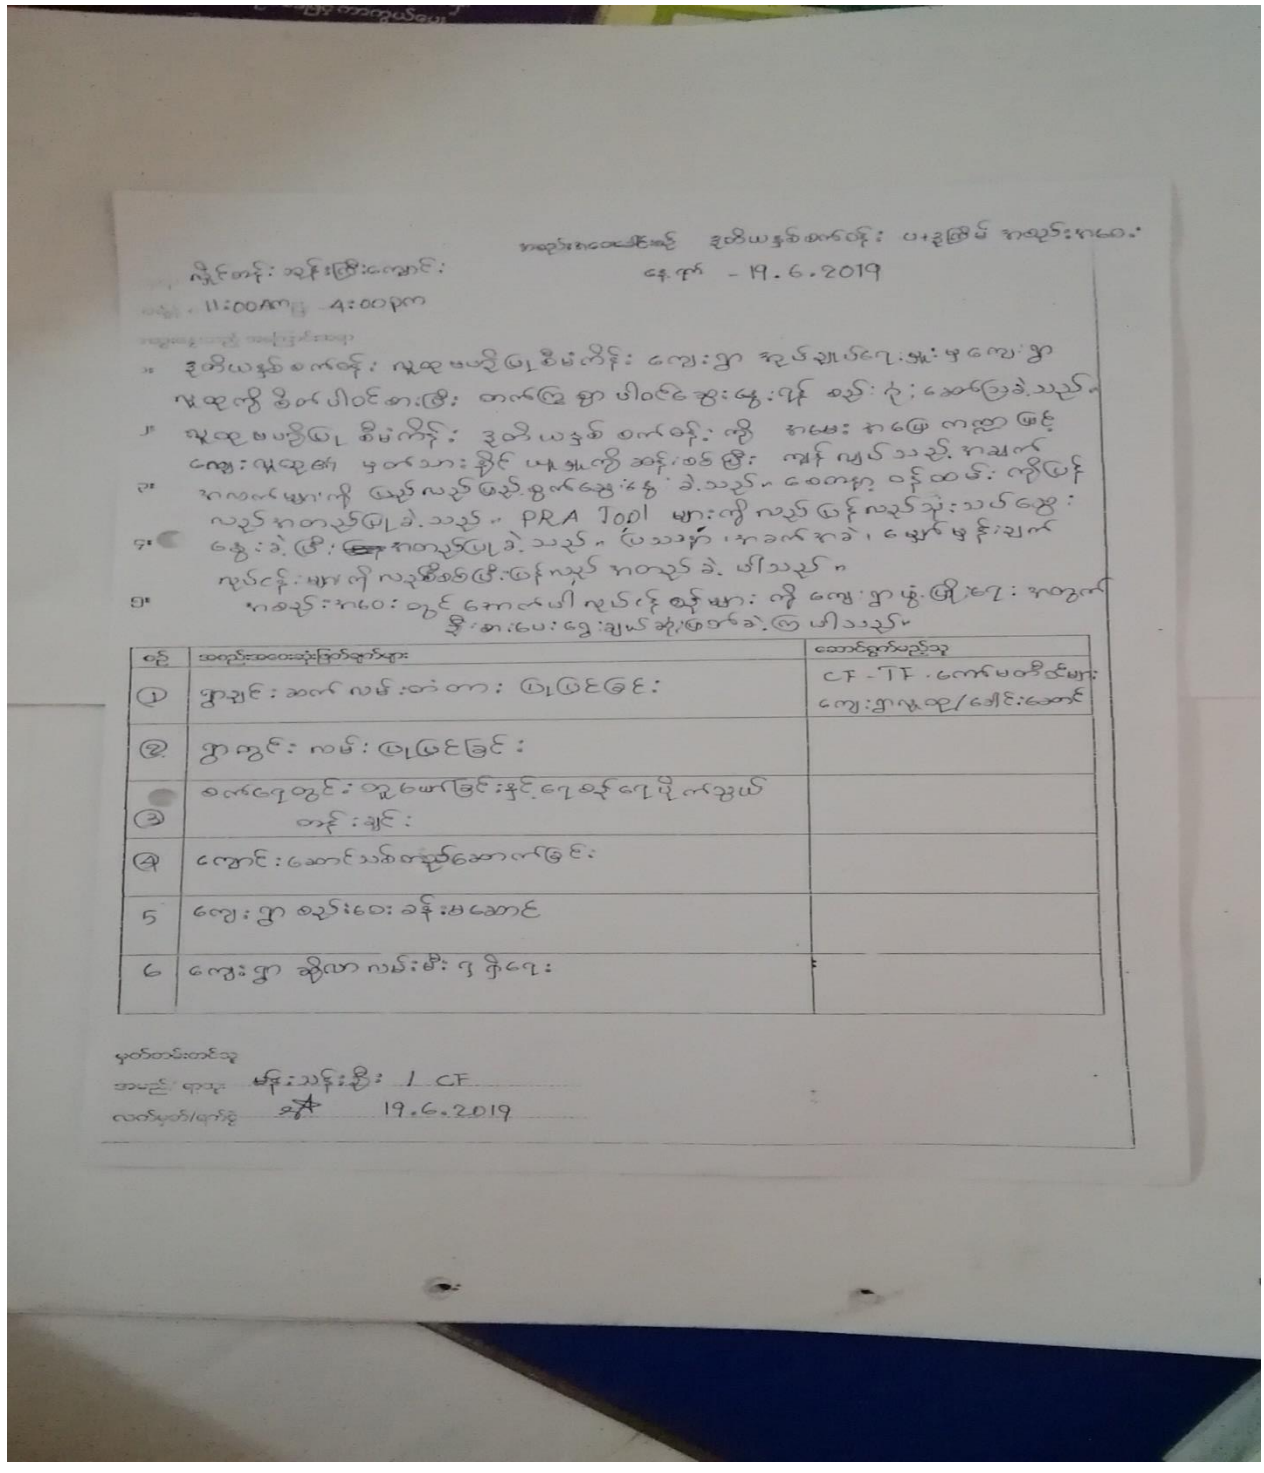 အစည်းအဝေးခေါင်းစဉ် ဒုတိယနှစ်စက်ဝန်း ပ+ဒုကြိမ် အစည်းအဝေး
လှိုင်တန်း ဘုန်းကြီးကျောင်း နေ့ရက် - 19.6.2019
11:00Am 4:00pm
၁။ ဒုတိယနှစ်စက်ဝန်း လူထုဗဟိုပြုစီမံကိန်း ကျေးရွာ အုပ်ချုပ်ရေးမှူးမှ ကျေးရွာ
လူထုကို စိတ်ပါဝင်စားပြီး တက်ကြွစွာ ပါဝင်ဆွေးနွေးရန် စည်းရုံးဆော်သြခဲ့သည်။
၂။ လူထုဗဟိုပြု စီမံကိန်း ဒုတိယနှစ် စက်ဝန်းကို အမေး အဖြေ ကဏ္ဍ ဖြင့်
ကျေးလူထု၏ မှတ်သားနိုင် ယူမှုကိုဆန်းစစ်ပြီး ကျန်လျှပ်သည့်အချက်
၃။ အလက်များကို ပြည်လည်ဖြည့်စွက်ဆွေးနွေးခဲ့သည်။ စေတနာ့ဝန်ထမ်း ကိုပြန်
လည်အတည်ပြုခဲ့သည်။ PRA Tool များကိုလည်းပြန်လည်သုံးသပ်ဆွေး
၄။ နွေးခဲ့ပြီး အတည်ပြုခဲ့သည်။ ပြဿနာ၊ အခက်အခဲ၊ မျှော်မှန်းချက်
လုပ်ငန်းများကိုလည်းစိစစ်ပြီးပြန်လည် အတည်ခဲ့ပါသည်။
၅။ အစည်းအဝေးတွင် အောက်ပါလုပ်ငန်းစဉ်များ ကို ကျေးရွာဖွံ့ဖြိုးရေး အတွက်
ဦးစားပေးရွေးချယ်ဆုံးဖြတ်ခဲ့ကြပါသည်။
စဉ် အစည်းအဝေးဆုံးဖြတ်ချက်များ ဆောင်ရွက်မည့်သူ
① ရွာချင်းဆက် လမ်းတံတား ပြုပြင်ခြင်း CF-TF ကော်မတီဝင်များ
ကျေးရွာလူထု/ခေါင်းဆောင်
② ရွာတွင်းလမ်း ပြုပြင်ခြင်း
စက်ရေတွင်းတူးဖော်ခြင်းနှင့်ရေစင်ရေပိုက်သွယ်
③ တန်းချင်း
④ ကျောင်းဆောင်သစ်တည်ဆောက်ခြင်း
5 ကျေးရွာ စည်းဝေးခန်းမဆောင်
6 ကျေးရွာ ဆိုလာလမ်းမီးရရှိရေး
မှတ်တမ်းတင်သူ
အမည်/ရာထူး မန်းသန်းဦး / CF
လက်မှတ်/ရက်စွဲ 19.6.2019